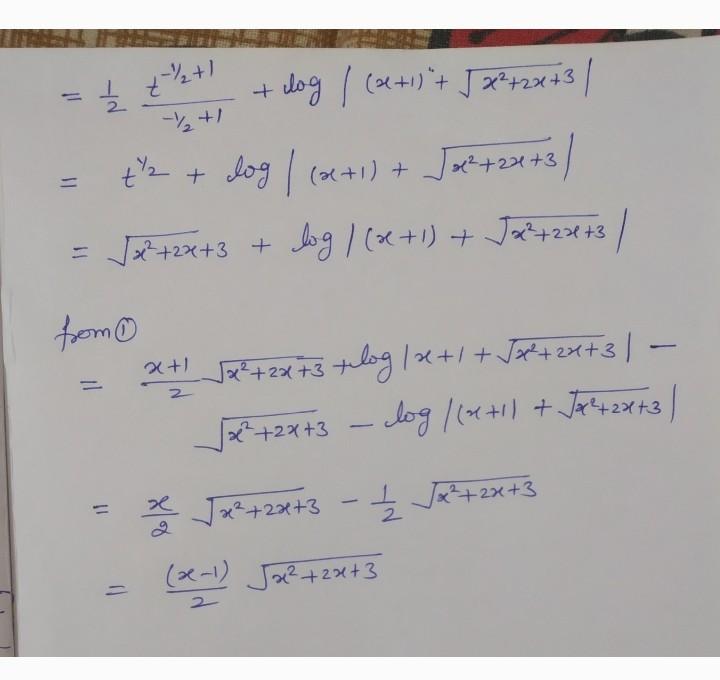 = 1/2 t^(-1/2+1)/(-1/2+1) + log |(x+1) + √(x²+2x+3)|
= t^(1/2) + log |(x+1) + √(x²+2x+3)|
= √(x²+2x+3) + log |(x+1) + √(x²+2x+3)|
from ①
= (x+1)/2 √(x²+2x+3) + log |x+1 + √(x²+2x+3)| −
√(x²+2x+3) − log |(x+1) + √(x²+2x+3)|
= x/2 √(x²+2x+3) − 1/2 √(x²+2x+3)
= (x-1)/2 √(x²+2x+3)